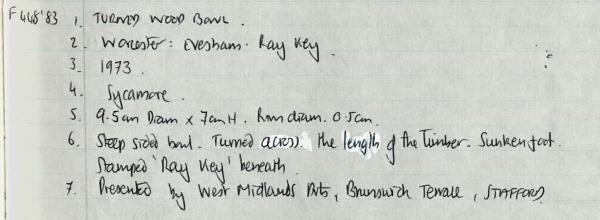 F448'83 1. TURNED WOOD BOWL.
2. Worcester: Evesham. Ray Key.
3. 1973.
4. Sycamore.
5. 9.5cm Diam x 7cm H. Rim diam. 0.5cm.
6. Steep sided bowl. Turned across the length of the Timber. Sunken foot.
Stamped 'Ray Key' beneath.
7. Presented by West Midlands Arts, Brunswick Terrace, STAFFORD